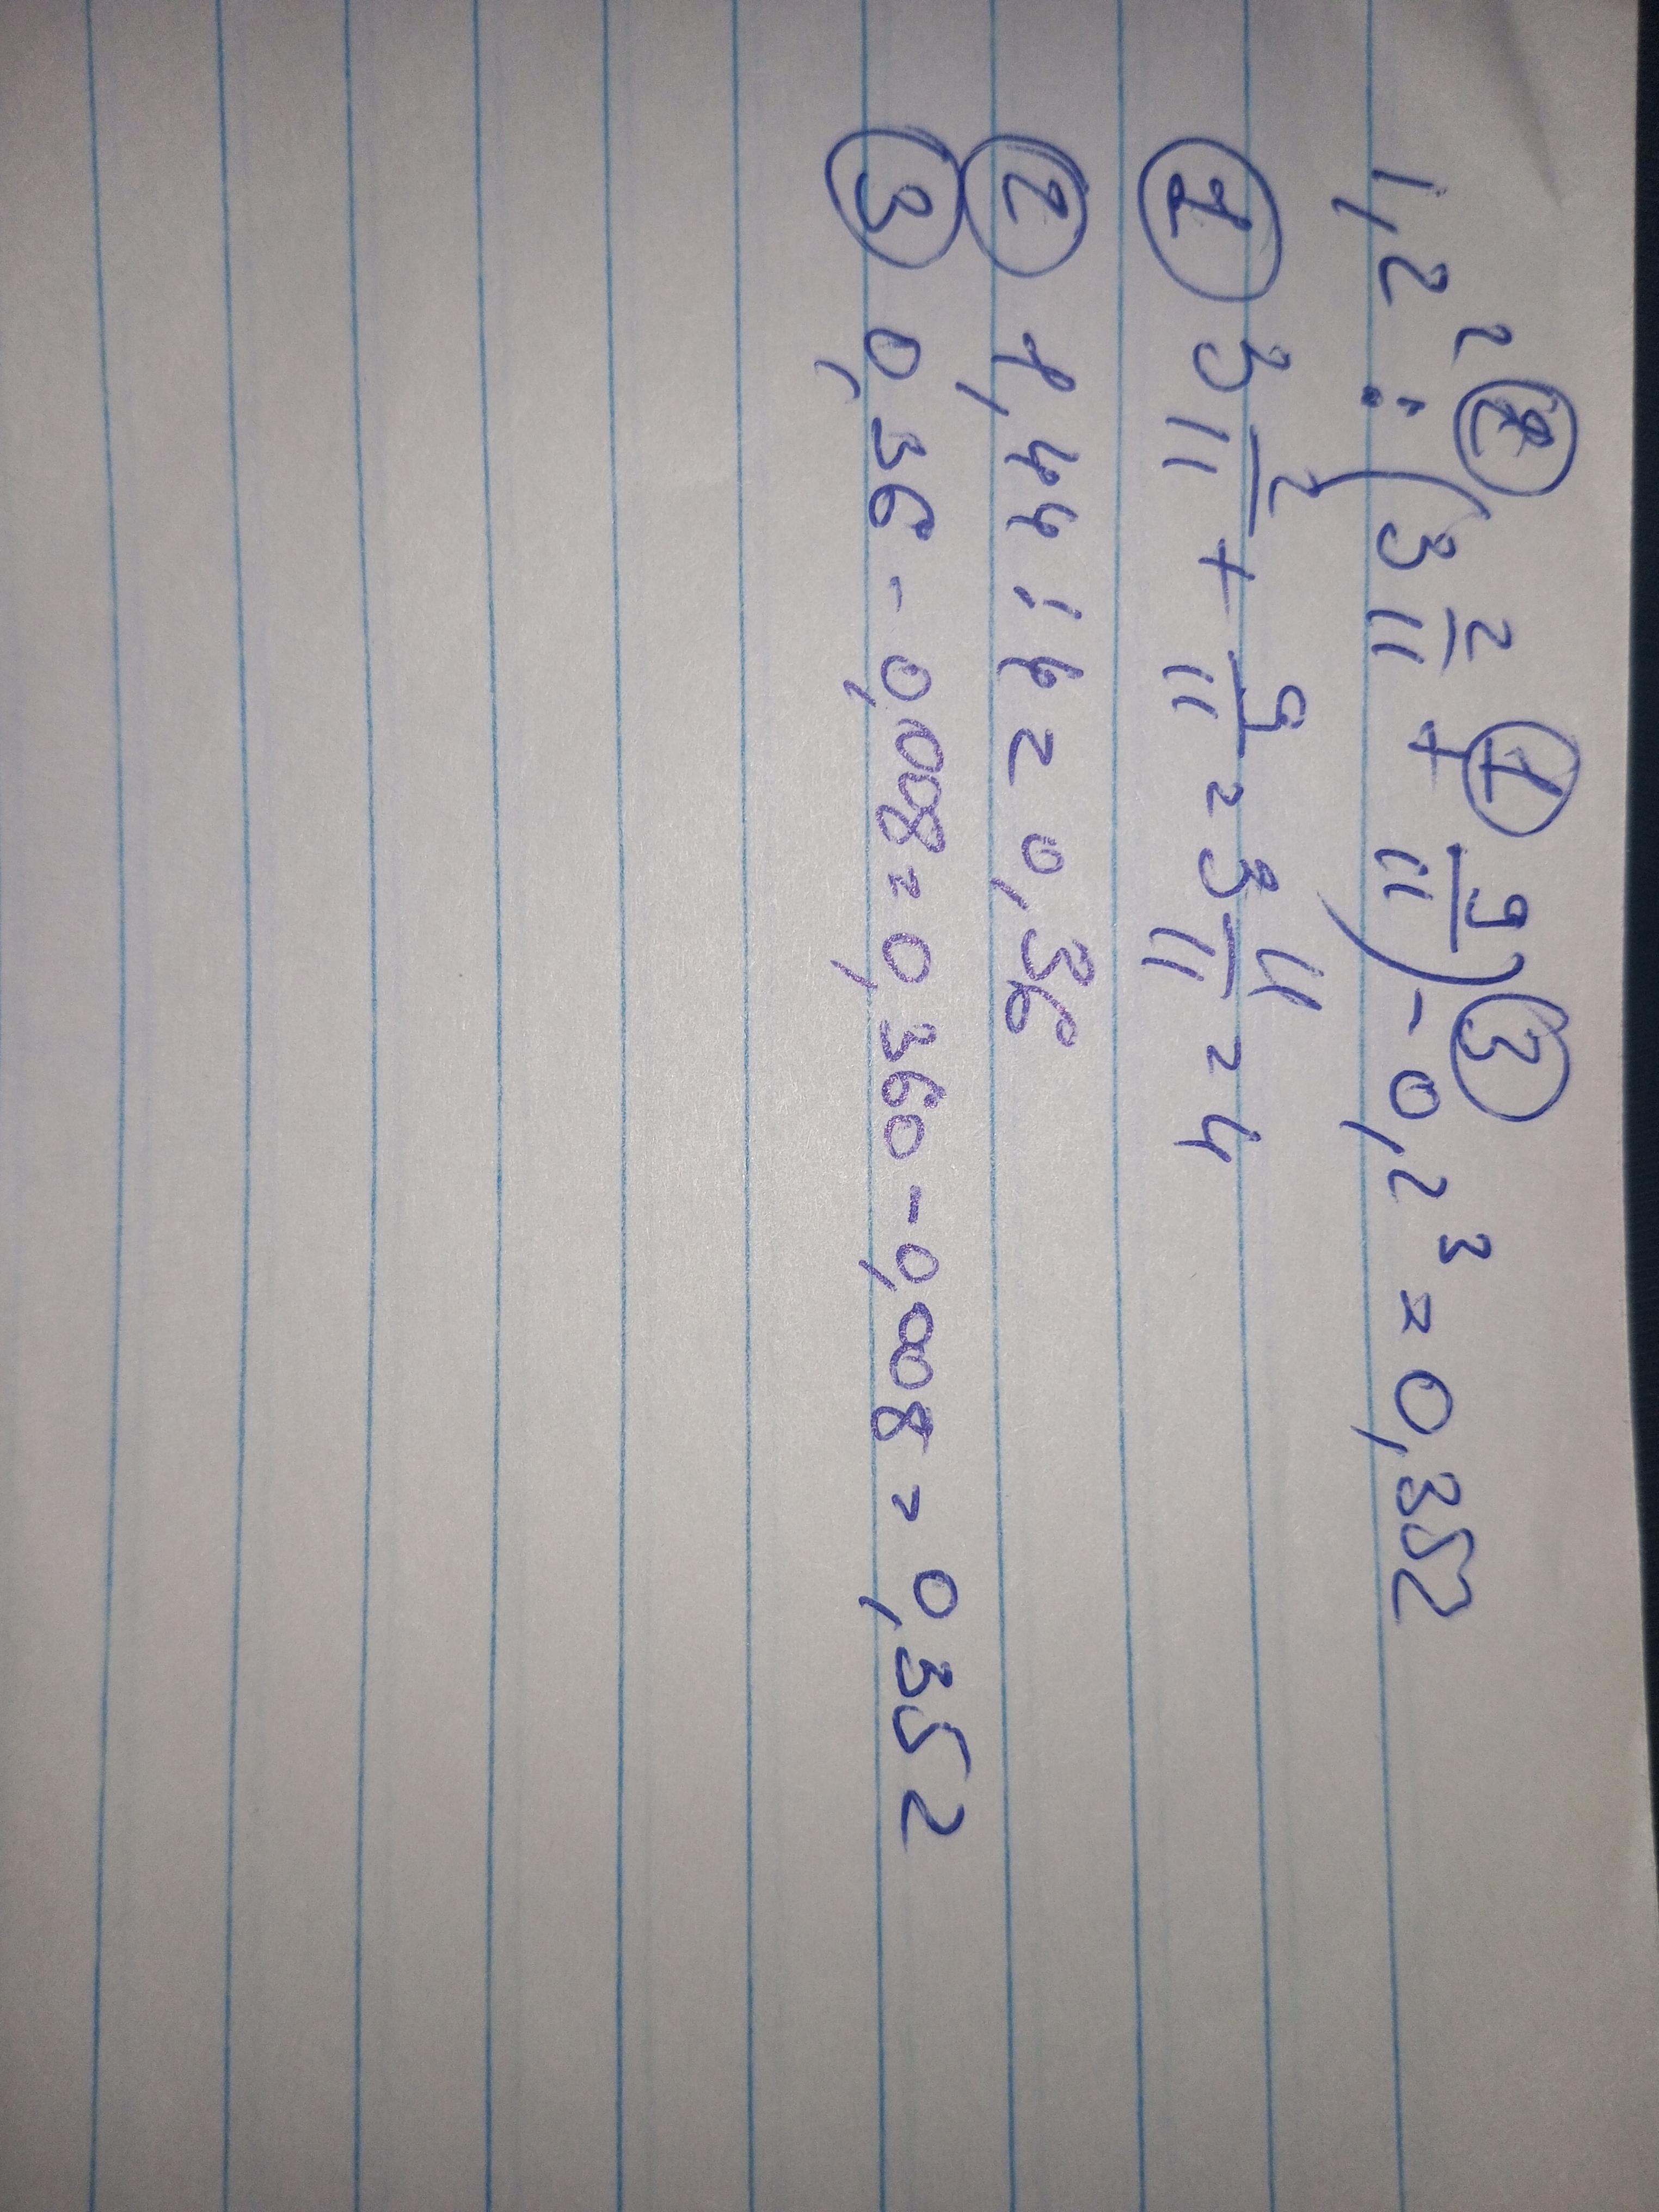 1,2² ② : (3 2/11 + ① 9/11) ③ - 0,2³ = 0,352
① 3 2/11 + 9/11 = 3 11/11 = 4
② 1,44 : 4 = 0,36
③ 0,36 - 0,008 = 0,360 - 0,008 = 0,352